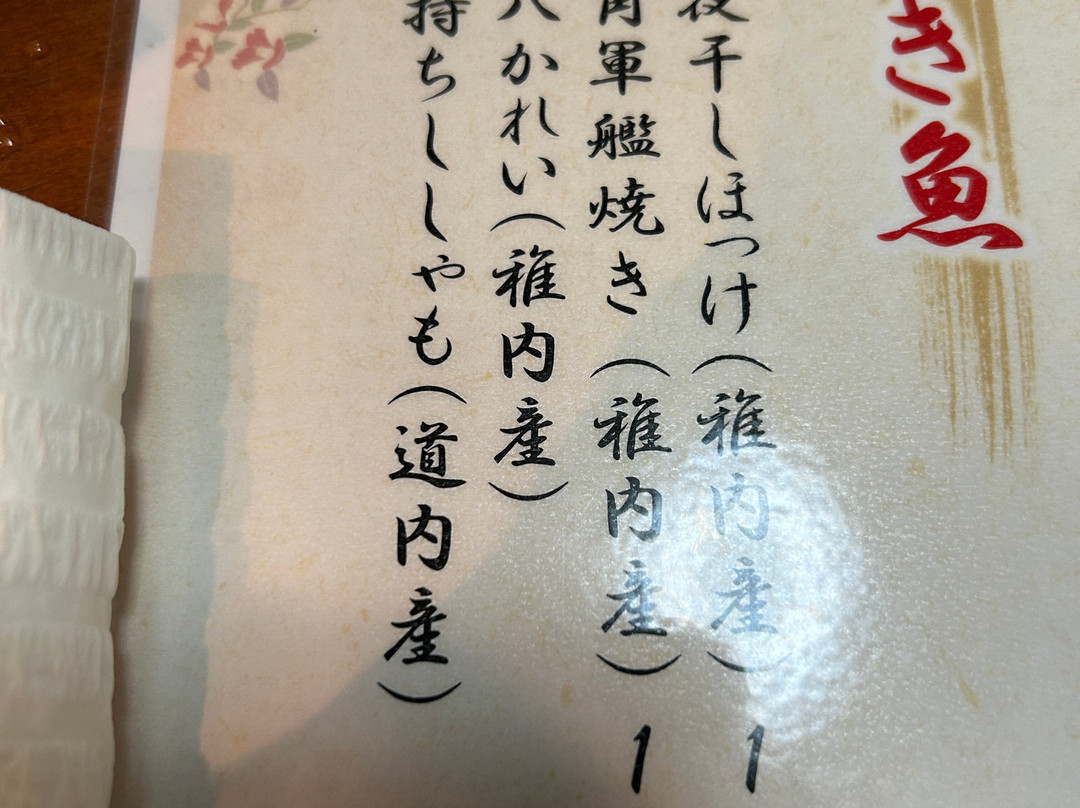 き魚
夜干しほっけ（稚内産）1
軍艦焼き（稚内産）1
八かれい（稚内産）
持ちししゃも（道内産）